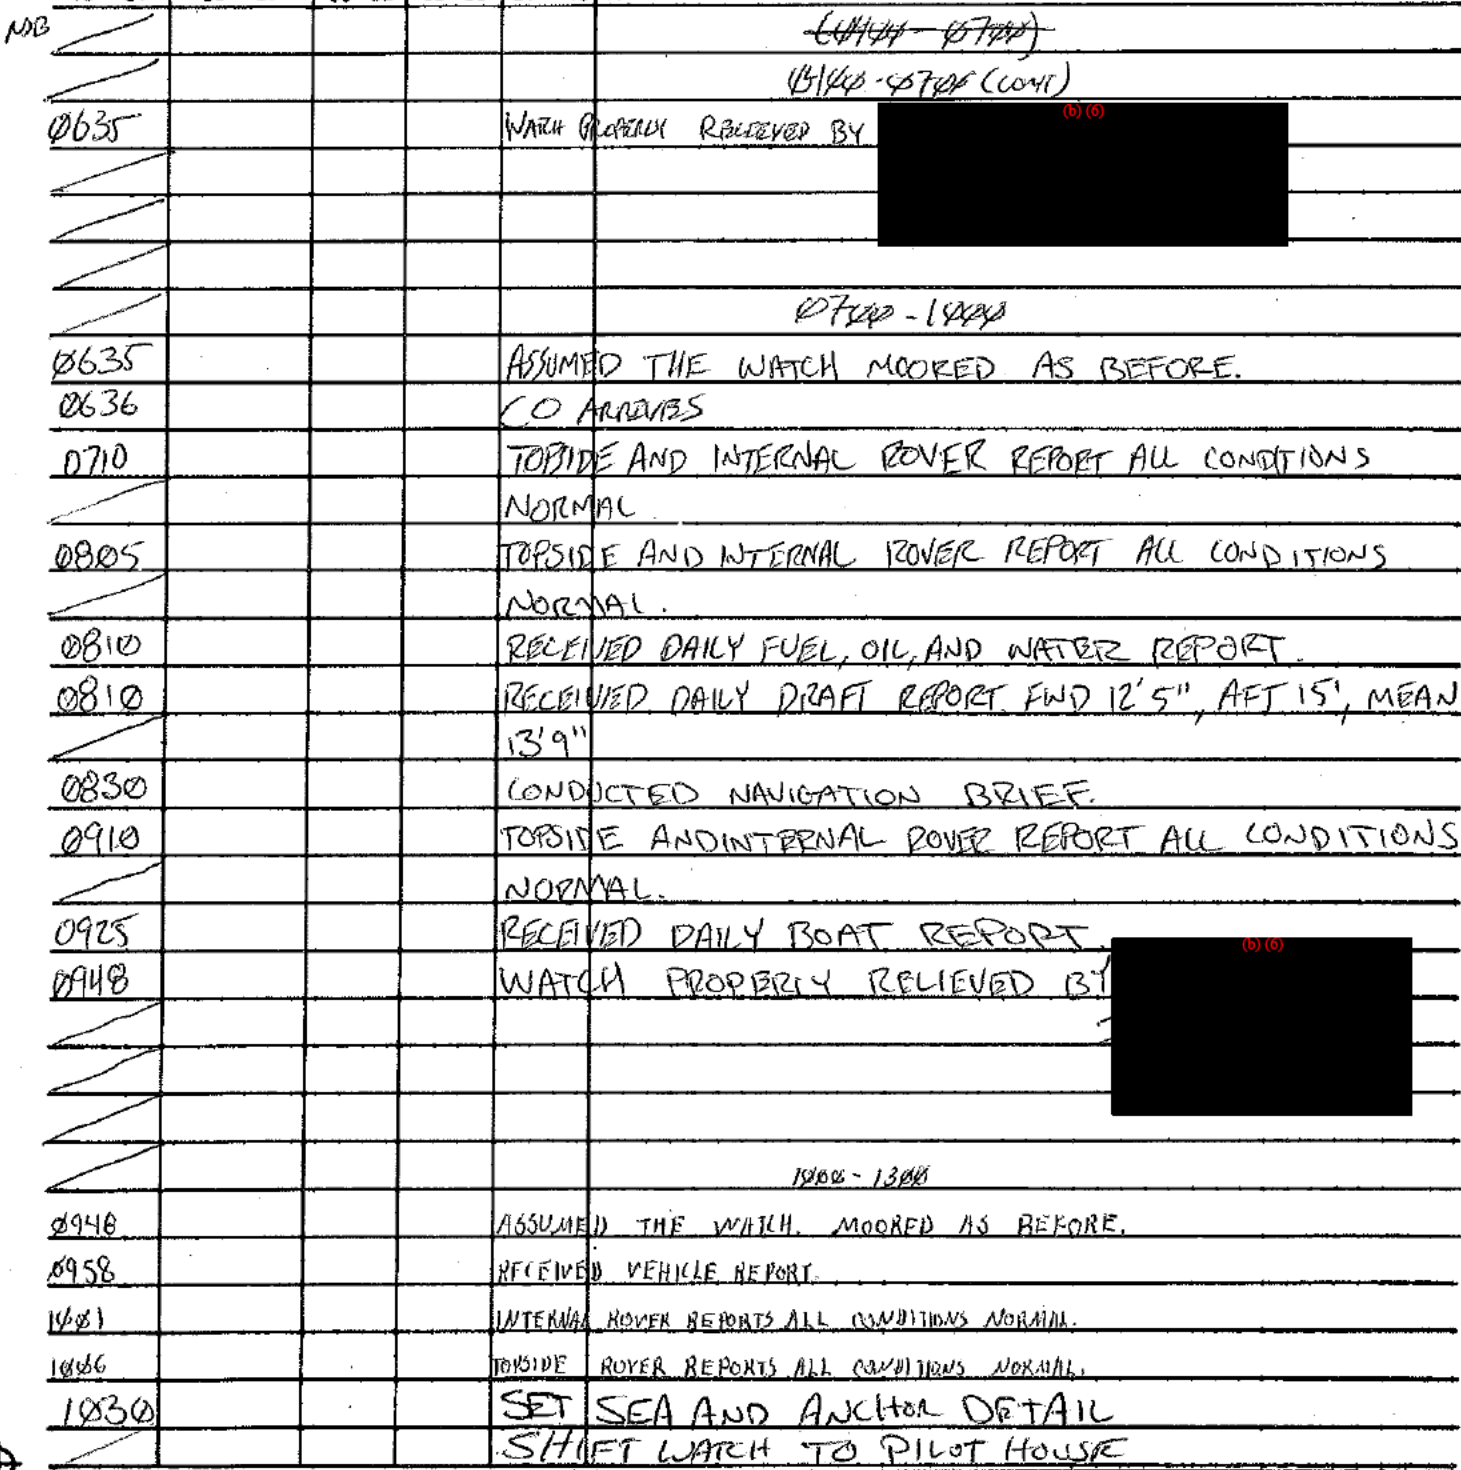 NDB
(0100-0700)
0100-0700 (CONT)
0635 WATCH PROPERLY RELIEVED BY (b) (6)
0700-1000
0635 ASSUMED THE WATCH MOORED AS BEFORE.
0636 CO ARRIVES
0710 TOPSIDE AND INTERNAL ROVER REPORT ALL CONDITIONS
NORMAL
0805 TOPSIDE AND INTERNAL ROVER REPORT ALL CONDITIONS
NORMAL.
0810 RECEIVED DAILY FUEL, OIL, AND WATER REPORT.
0810 RECEIVED DAILY DRAFT REPORT. FWD 12'5", AFT 15', MEAN
13'9"
0830 CONDUCTED NAVIGATION BRIEF.
0910 TOPSIDE AND INTERNAL ROVER REPORT ALL CONDITIONS
NORMAL.
0925 RECEIVED DAILY BOAT REPORT.
0948 WATCH PROPERLY RELIEVED BY (b) (6)
1000-1300
0948 ASSUMED THE WATCH. MOORED AS BEFORE.
0958 RECEIVED VEHICLE REPORT.
1001 INTERNAL ROVER REPORTS ALL CONDITIONS NORMAL.
1006 TOPSIDE ROVER REPORTS ALL CONDITIONS NORMAL.
1030 SET SEA AND ANCHOR DETAIL
SHIFT WATCH TO PILOT HOUSE